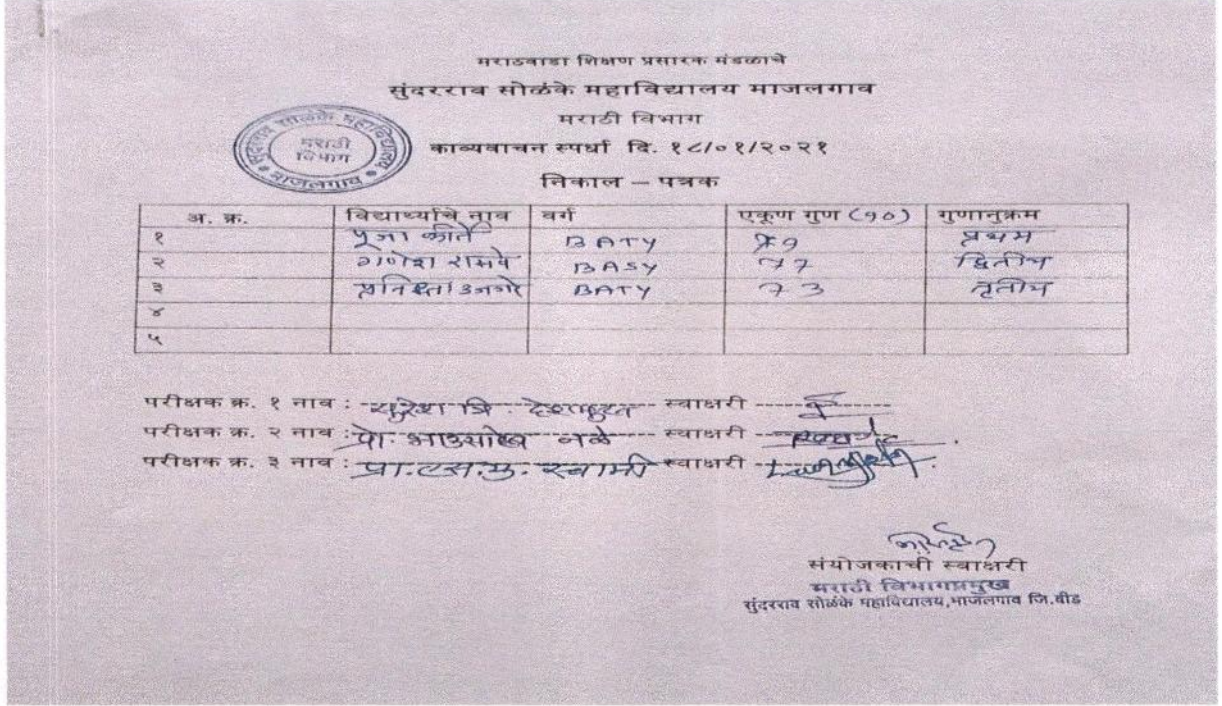 मराठवाडा शिक्षण प्रसारक मंडळाचे
सुंदरराव सोळंके महाविद्यालय माजलगाव
मराठी विभाग
काव्यवाचन स्पर्धा दि. १८/०१/२०२१
निकाल – पत्रक
सुंदरराव सोळंके महाविद्यालय
मराठी
विभाग
माजलगाव
अ. क्र. विद्यार्थ्याचे नाव वर्ग एकूण गुण (९०) गुणानुक्रम
१ पूजा BATY प्रथम
२ गणेश BASY द्वितीय
३ BATY तृतीय
४
५
परीक्षक क्र. १ नाव : सुरेश त्रि. देशमुख स्वाक्षरी
परीक्षक क्र. २ नाव : प्रो भाऊसाहेब नळे स्वाक्षरी
परीक्षक क्र. ३ नाव : प्रा. एस.यु. स्वामी स्वाक्षरी
संयोजकाची स्वाक्षरी
मराठी विभागप्रमुख
सुंदरराव सोळंके महाविद्यालय,माजलगाव जि.बीड